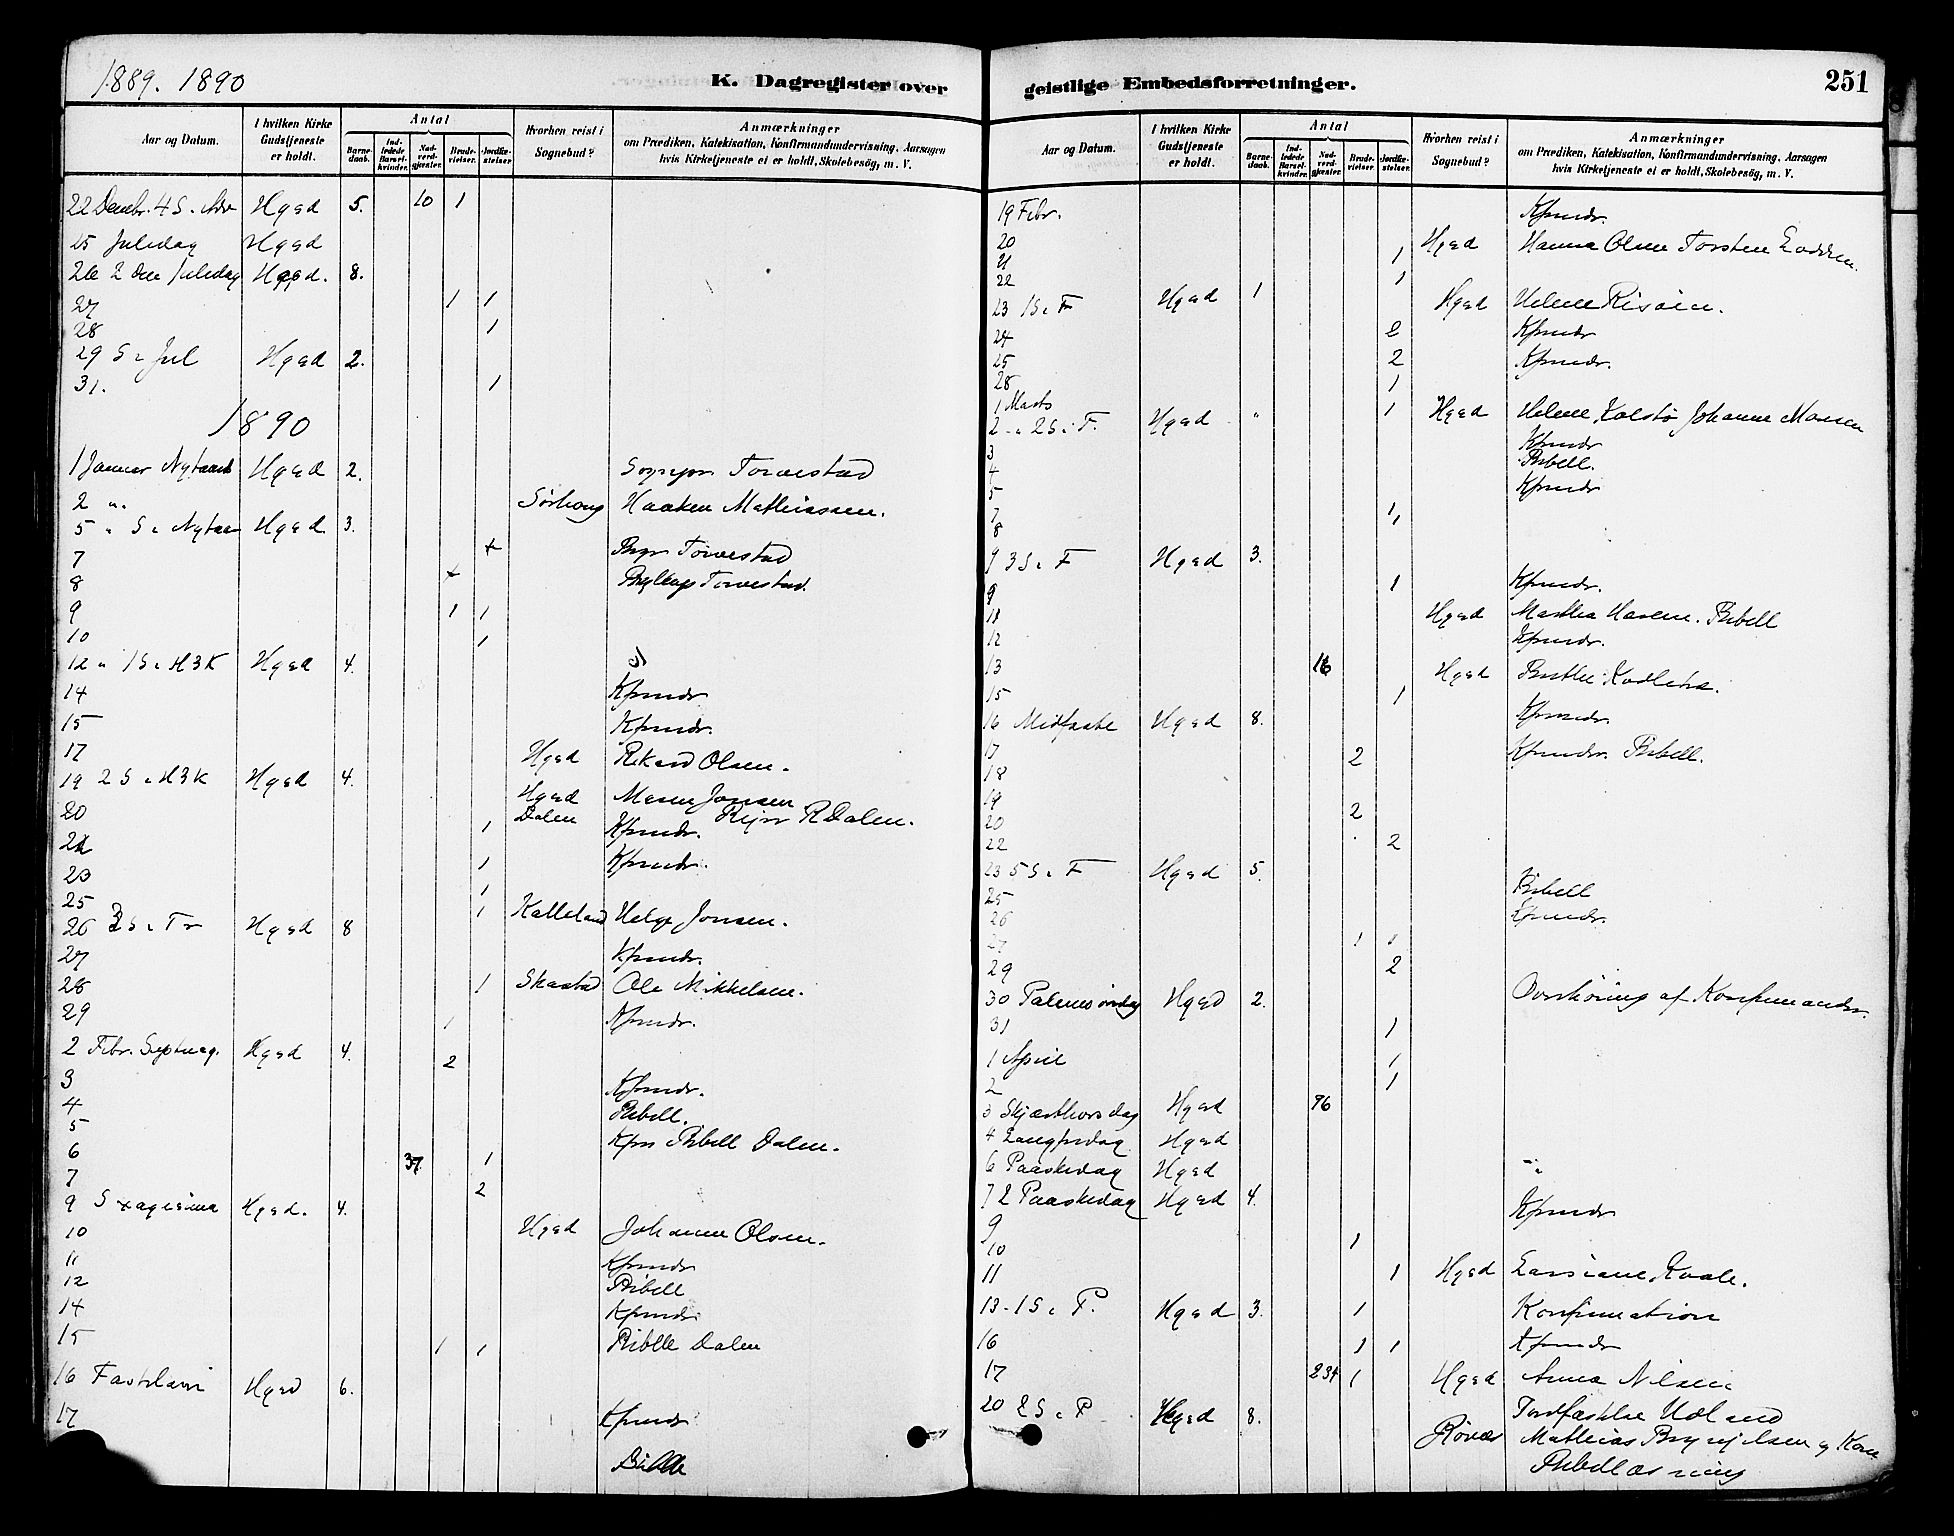 1889. 1890
K. Dagregister over
Aar og Datum.
I hvilken Kirke Gudstjeneste er holdt.
Antal
Barne-daab.
Ind-ledede Barsel-kvinder.
Nad-verd-gjester.
Brude-vielser.
Jordfæ-stelser
Hvorhen reist i Sognebud?
Anmærkninger
om Prædiken, Katekisation, Konfirmandundervisning, Aarsagen
hvis Kirketjeneste ei er holdt, Skolebesög, m. V.
22 Decebr. 4 S. Adv Hgsd 5. 10 1
25 Juledag Hgsd
26 2den Juledag Hgsd. 8.
27 1 1
28 1
29 S i Jul Hgsd 2.
31. 1
1890
1 Januar Nytaard Hgsd 2. Torvestad
2 " Sørhoug Haaken Mathiassen.
5 " S. Nytaar Hgsd 3.
7 + Torvestad
8 + Torvestad.
9 1 1
10 1
12 " 1 S. H3K Hgsd 4.
14 Kfrmdr
15 Kfrmdr.
17 Hgsd Rikard Olsen.
19 2 S. H3K Hgsd 4.
Hgsd Jonsen
20 Dalen R Dalen.
1 Kfrmdr.
22
23 1 Kfrmdr.
25 1
26 3 S. Tr Hgsd 8 1 Kalleland Helge Jonsen.
27 Kfrmdr.
28 1 Skaatad Ole Mikkelsen.
29 Kfrmdr.
2 Febr. Septuag. Hgsd 4. 2
3 Kfrmdr.
4 Bibell.
5 Bibell Dalen.
6 37 1
7 2
9 Sexagesima Hgsd. 4.
10 Hgsd Johanne Olsen.
11 Kfrmdr
12 Bibell
14 Kfrmdr.
15 1 1 Dalen
16 Fastelavn Hgsd 6.
17 Kfrmdr
geistlige Embedsforretninger.
251
Aar og Datum.
I hvilken Kirke Gudstjeneste er holdt.
Antal
Barne-daab.
Ind-ledede Barsel-kvinder.
Nad-verd-gjester.
Brude-vielser.
Jordfæ-stelser.
Hvorhen reist i Sognebud?
Anmærkninger
om Prædiken, Katekisation, Konfirmandundervisning, Aarsagen
hvis Kirketjeneste ei er holdt, Skolebesög, m. V.
19 Febr. Kfrmdr.
20 Hgsd Hanna Olsen Torsten
21 1
22 1
23 1 S. F Hgsd 1 Hgsd Helene Risøen.
24 2 Kfrmdr
25 2 Kfrmdr.
28 1
1 Marts 1 Hgsd Helene Kolstø Johanne Monsen
2 " 2 S. F. Hgsd "
3 Kfrmdr
4 Bibell.
5 Kfrmdr
7 1
8 1
9 3 S. F Hgsd 3.
9 1 Kfrmdr.
11 Hgsd Martha Hansen. Bibell
12 Kfrmdr.
13 16 Hgsd
15 1
16 Midfaste Hgsd 8. Kfrmdr.
17 2 Kfrmdr. Bibell.
18
19
20 2
22 2
23 5 S. F Hgsd 5.
25 Bibell
26 Kfrmdr.
27 1 1
29 2
30 Palmesøndag Hgsd 2. Overhøring af Konfirmander.
31 1
1 April 1
2 1
3 Skjærthorsdag Hgsd 96
4 Langfredag Hgsd
6 Paaskedag Hgsd
7 2 Paaskedag Hgsd 4.
9 Kfrmdr
10 1
11 1 Hgsd Larsiane Kvale.
13 - 1 S. P. Hgsd 3. 1 Konfirmation
16 1 1 Kfrmdr
17 234 1 Hgsd Anna Nilsen
20 2 S. P Hgsd 8. Jordfæstelse Udland
Røvær Mathias Brynjelsen og Kone
Bibellæsning